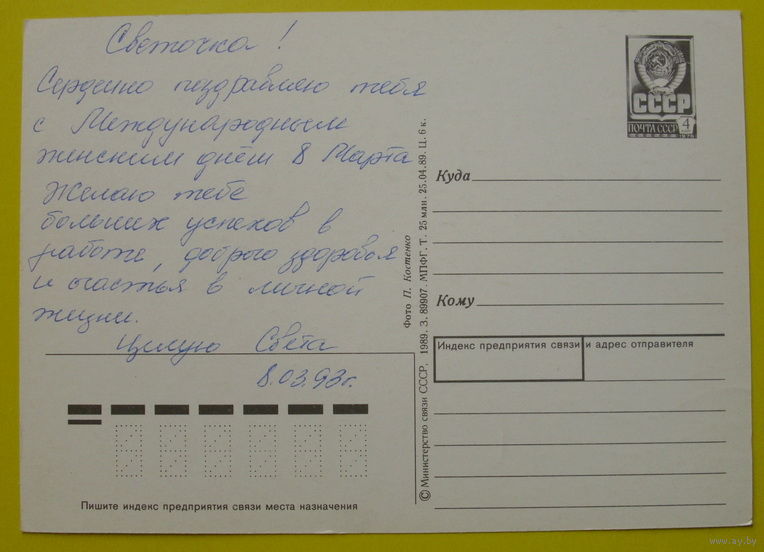 Светочка!
Сердечно поздравляю тебя
с Международным
женским днём 8 Марта
Желаю тебе
больших успехов в
работе, доброго здоровья
и счастья в личной
жизни.
Целую Света
8.03.93г.
Пишите индекс предприятия связи места назначения
© Министерство связи СССР, 1989. З. 89907. МПФГ. Т. 25 млн. 25.04.89. Ц. 6 к.
Фото П. Костенко
СССР
ПОЧТА СССР 4
1978
Куда
Кому
Индекс предприятия связи и адрес отправителя
www.ay.by